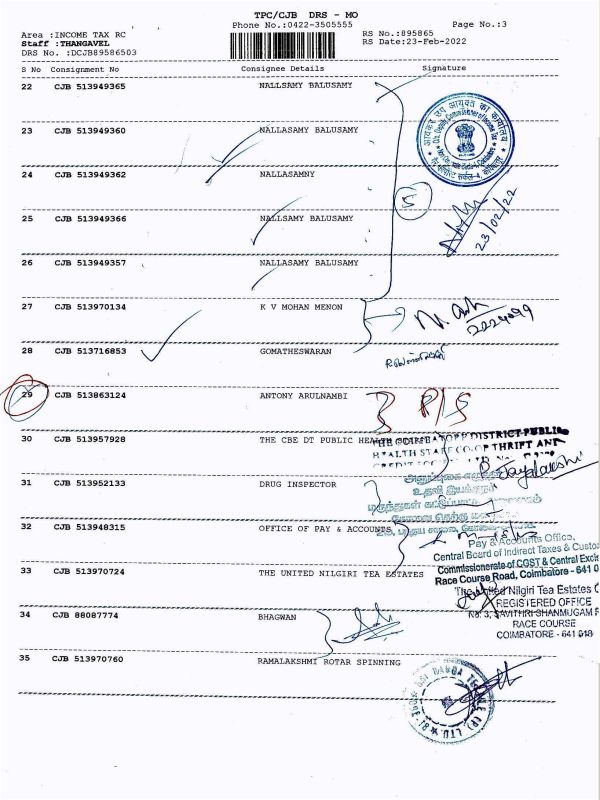 TPC/CJB DRS - MO
Phone No.:0422-3505555
Page No.:3
Area :INCOME TAX RC
RS No.:895865
Staff :THANGAVEL
RS Date:23-Feb-2022
DRS No. :DCJB89586503
S No Consignment No Consignee Details Signature
22 CJB 513949365 NALLSAMY BALUSAMY
23 CJB 513949360 NALLASAMY BALUSAMY
24 CJB 513949362 NALLASAMNY
5
23/02/22
25 CJB 513949366 NALLSAMY BALUSAMY
26 CJB 513949357 NALLASAMY BALUSAMY
27 CJB 513970134 K V MOHAN MENON
28 CJB 513716853 GOMATHESWARAN
29 CJB 513863124 ANTONY ARULNAMBI
R/S
30 CJB 513957928 THE CBE DT PUBLIC HEALTH
THE COIMBATORE DISTRICT PUBLIC
HEALTH STAFF CO-OP THRIFT AND
Jayalakshi
31 CJB 513952133 DRUG INSPECTOR
32 CJB 513948315 OFFICE OF PAY & ACCOUNTS
Pay & Accounts Office,
Central Board of Indirect Taxes & Custo
Commissionerate of CGST & Central Exci
Race Course Road, Coimbatore - 641 0
33 CJB 513970724 THE UNITED NILGIRI TEA ESTATES
The United Nilgiri Tea Estates C
REGISTERED OFFICE
No. 3, SAVITHRI SHANMUGAM R
RACE COURSE
COIMBATORE - 641 018
34 CJB 88087774 BHAGWAN
35 CJB 513970760 RAMALAKSHMI ROTAR SPINNING